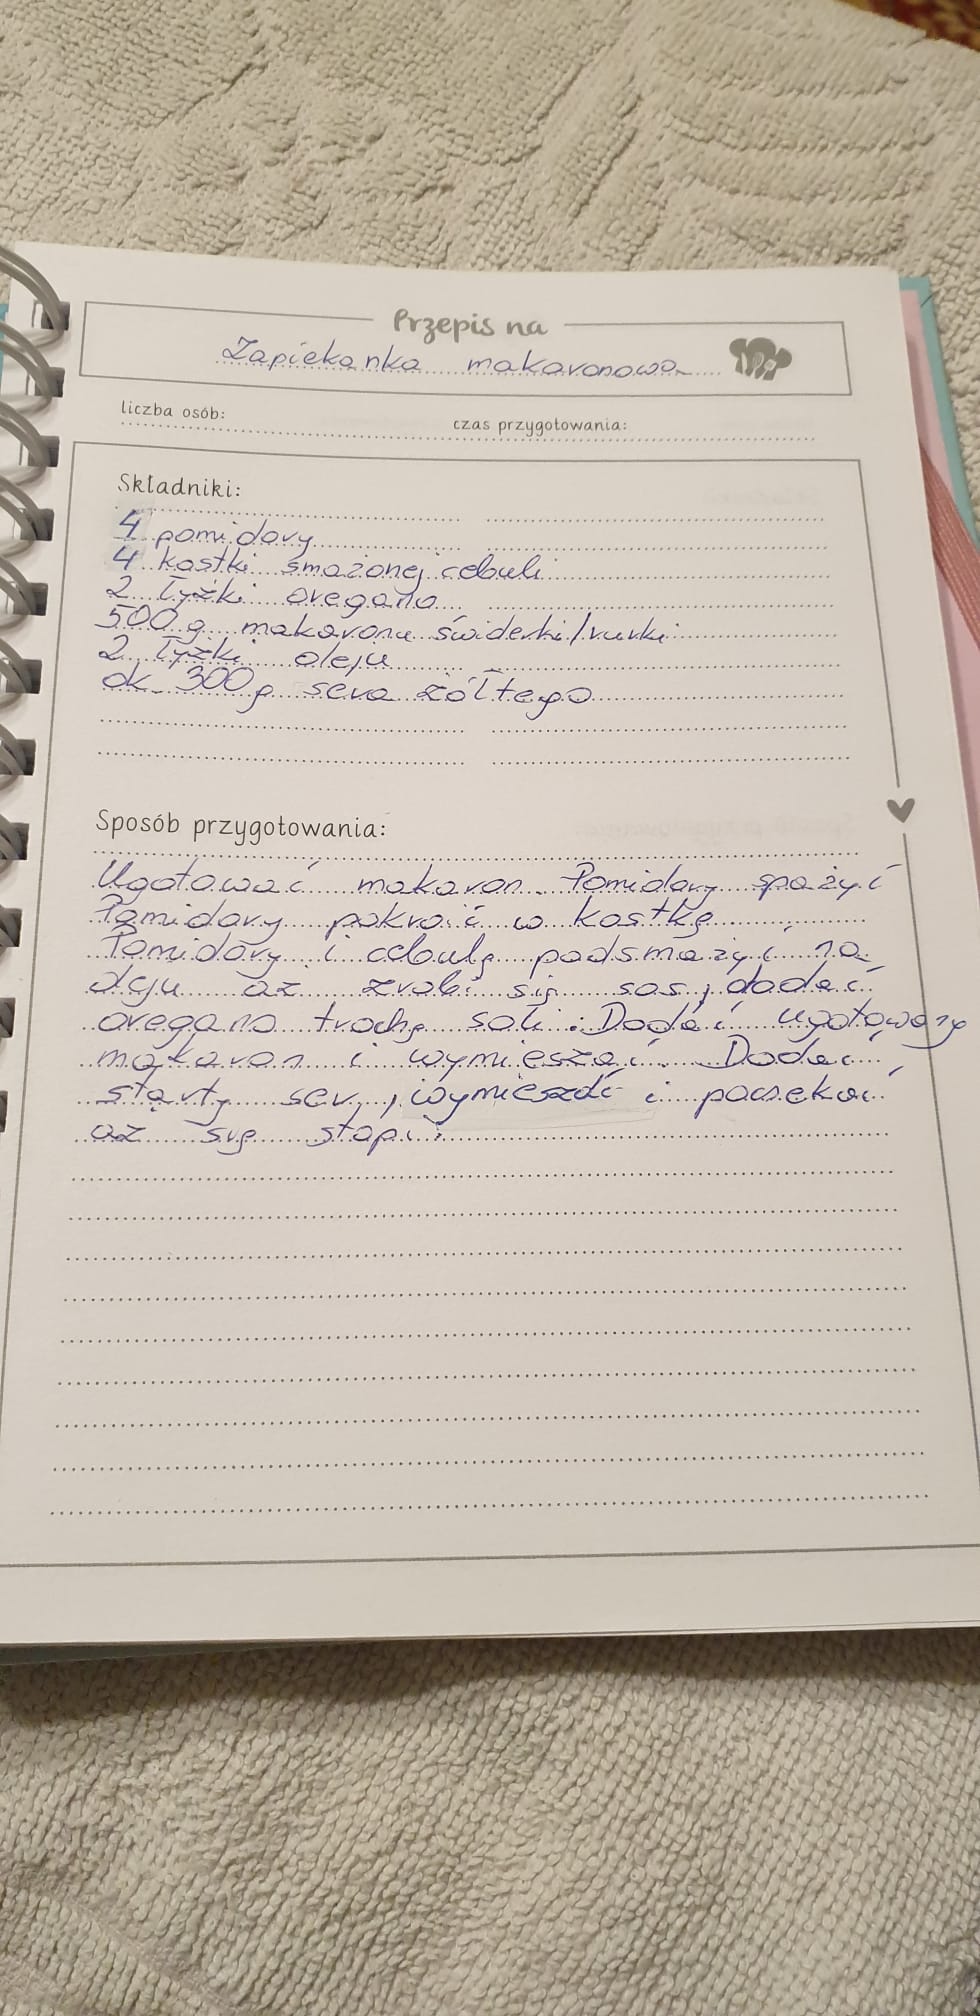 Przepis na
Zapiekanka makaronowa
liczba osób:
czas przygotowania:
Składniki:
4 pomidory
4 kostki smażonej cebuli
2 łyżki oregano
500 g makaronu świderki/rurki
2 łyżki oleju
ok. 300g sera żółtego
Sposób przygotowania:
Ugotować makaron. Pomidory spażyć
Pomidory pokroić w kostkę
Pomidory i cebulę podsmażyć na
oleju aż zrobi się sos, dodać
oregano trochę soli. Dodać ugotowany
makaron i wymieszać. Dodać
starty ser, wymieszać i poczekać
aż się stopi.